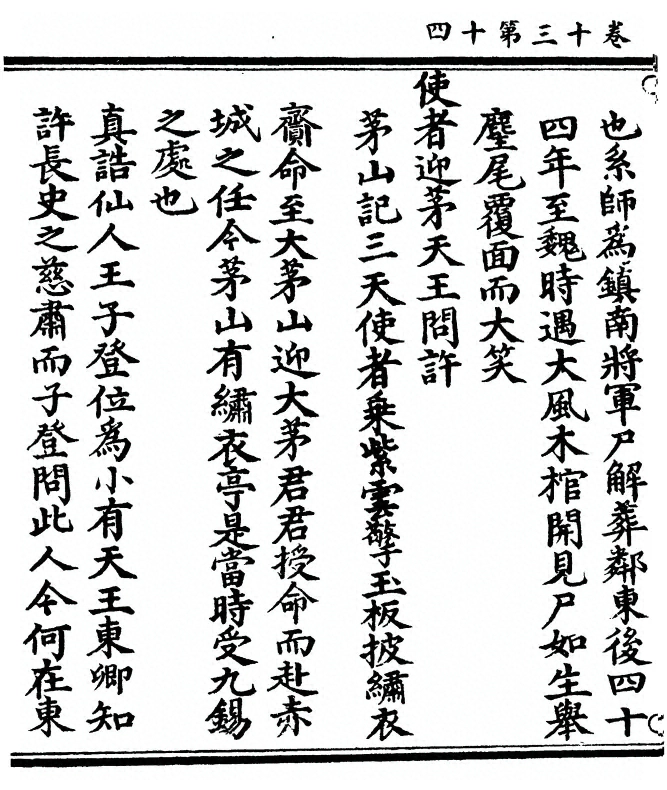 卷十三第十四
也系師為鎮南將軍尸解葬鄰東後四十
四年至魏時遇大風木棺開見尸如生舉
麈尾覆面而大笑
使者迎茅天王問許
茅山記三天使者乗紫雲擎玉板披繡衣
齎命至大茅山迎大茅君君授命而赴赤
城之任今茅山有繡衣亭是當時受九錫
之處也
真誥仙人王子登位為小有天王東卿知
許長史之慈肅而子登問此人今何在東